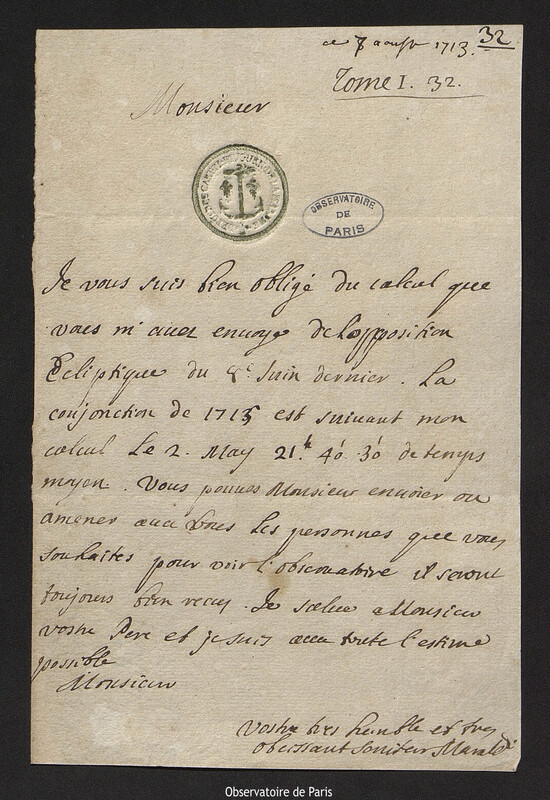 ce 7 aoust 1713.
32
Tome I. 32.
Monsieur
OBSERVATOIRE
DE
PARIS
Je vous suis bien obligé du calcul que
vous m'avez envoyé de l'opposition
Ecliptique du 8e Juin dernier. La
conjonction de 1715 est suivant mon
calcul Le 2. May 21.h 40' 30" de temps
moyen. Vous pouues Monsieur envoier ou
amener avec vous les personnes que vous
souhaites pour voir l'observatoire il seront
toujours bien recus. Je salue a Monsieur
vostre Pere et je suis avec toute l'estime
possible
Monsieur
Vostre tres humble et tres
obeissant serviteur Maraldi
Observatoire de Paris